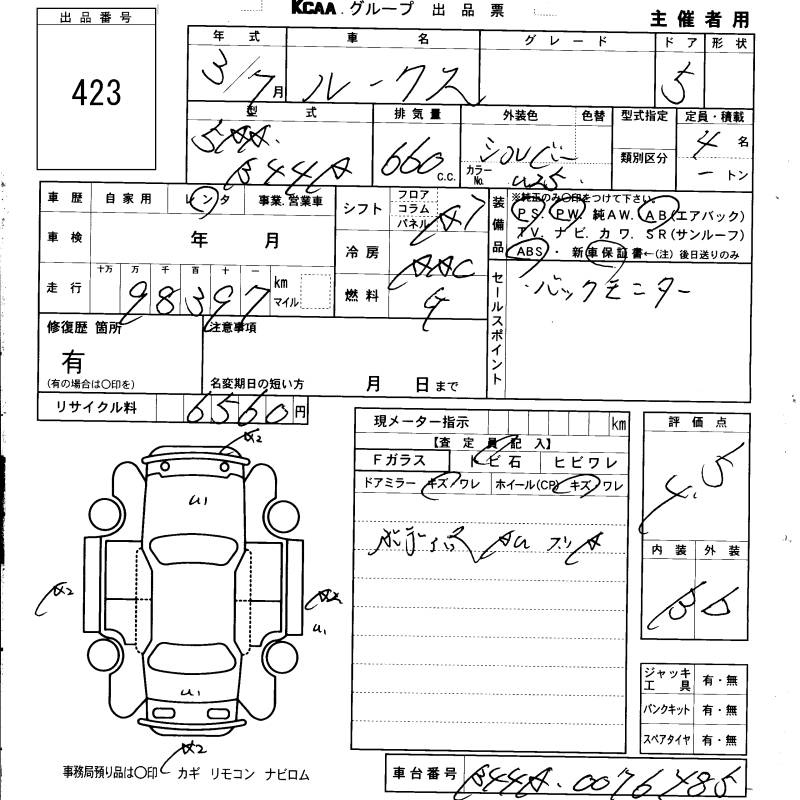 KCAA グループ 出品票
主催者用
出品番号
423
年式 車名 グレード ドア 形状
3/7月 ルークス 5
型式 排気量 外装色 色替 型式指定 定員・積載
5AA B44A 660 c.c. シルバー カラーNo. 類別区分 4名
ートン
車歴 自家用 レンタ 事業.営業車
車検 年 月
走行 十万 万 千 百 十 一
98397 km マイル
シフト フロア コラム パネル A7
冷房 AAC
燃料 G
装備品 ※純正のみ〇印をつけて下さい。
PS. PW. 純AW. AB(エアバック)
TV. ナビ. カワ. SR(サンルーフ)
ABS・ 新車保証書←(注) 後日送りのみ
セールスポイント
・バックモニター
修復歴 箇所
有
(有の場合は〇印を)
注意事項
名変期日の短い方 月 日まで
リサイクル料 6560円
現メーター指示 km
【査定員記入】
Fガラス トビ石 ヒビワレ
ドアミラー キズ・ワレ ホイール(CP) キズ・ワレ
評価点
4.5
内装 外装
B B
A2
U1
A2
A2
U1
U1
A2
ジャッキ工具 有・無
パンクキット 有・無
スペアタイヤ 有・無
事務局預り品は〇印 カギ リモコン ナビロム
車台番号 B44A-0076485